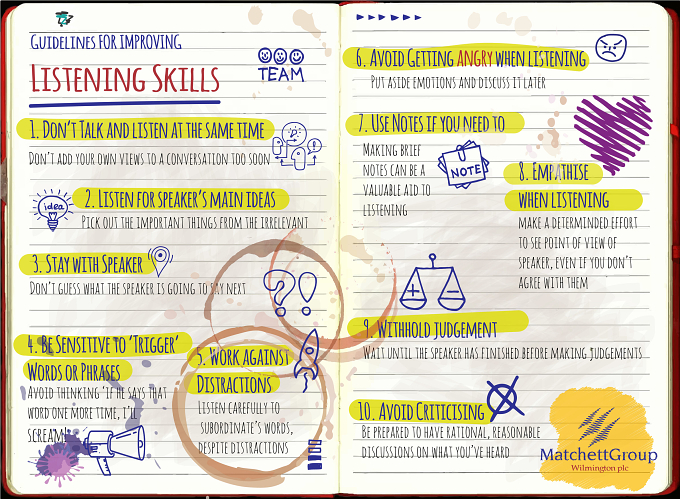 Guidelines for improving
Listening Skills
TEAM
1. Don't Talk and listen at the same time
Don't add your own views to a conversation too soon
idea
2. Listen for speaker's main ideas
Pick out the important things from the irrelevant
3. Stay with Speaker
Don't guess what the speaker is going to say next
4. Be Sensitive to 'Trigger'
Words or Phrases
Avoid thinking 'if he says that
word one more time, i'll
scream!'
5. Work Against
Distractions
Listen carefully to
subordinate's words,
despite distractions
6. Avoid Getting angry when listening
Put aside emotions and discuss it later
7. Use Notes if you need to
Making brief
notes can be a
valuable aid to
listening
NOTE
8. Empathise
when listening
make a determinded effort
to see point of view of
speaker, even if you don't
agree with them
9. Withhold judgement
Wait until the speaker has finished before making judgements
10. Avoid Criticising
Be prepared to have rational, reasonable
discussions on what you've heard
MatchettGroup
Wilmington plc